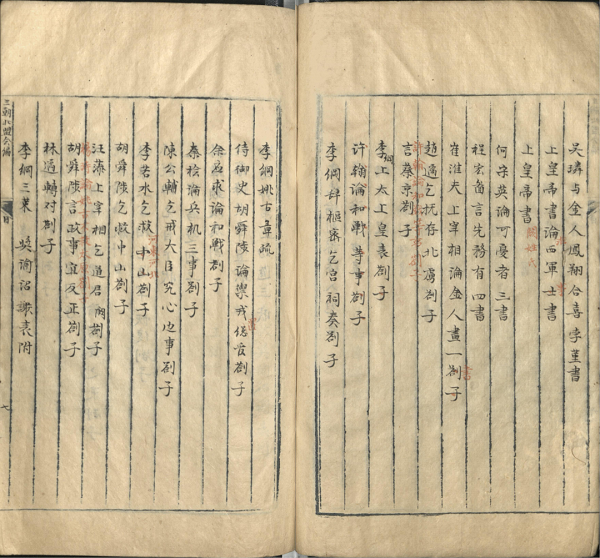 吳璘与金人鳳翔合喜孛堇書
上皇帝書論西軍士書
上皇帝書
何㮚英論可憂者三書
程宏啚言先務有四書
崔淮夫上宰相論金人畫一劄子
趙遹乞撫存北虜劄子
言蔡京劄子
李綱上太上皇表劄子
許翰論和戰等事劄子
李綱辞樞密乞宮祠奏劄子
李綱姚古章疏
侍御史胡舜陟論禦戎俻邊劄子
余應求論和戰劄子
秦桧論兵机三事劄子
陳公輔乞戒大臣究心边事劄子
李若水乞救中山劄子
胡舜陟乞救中山劄子
汪藻上宰相乞道君劄子
胡舜陟言政事宜反正劄子
林遹轉对劄子
李綱三策 奨諭詔 謝表附
三朝北盟会編
目
七